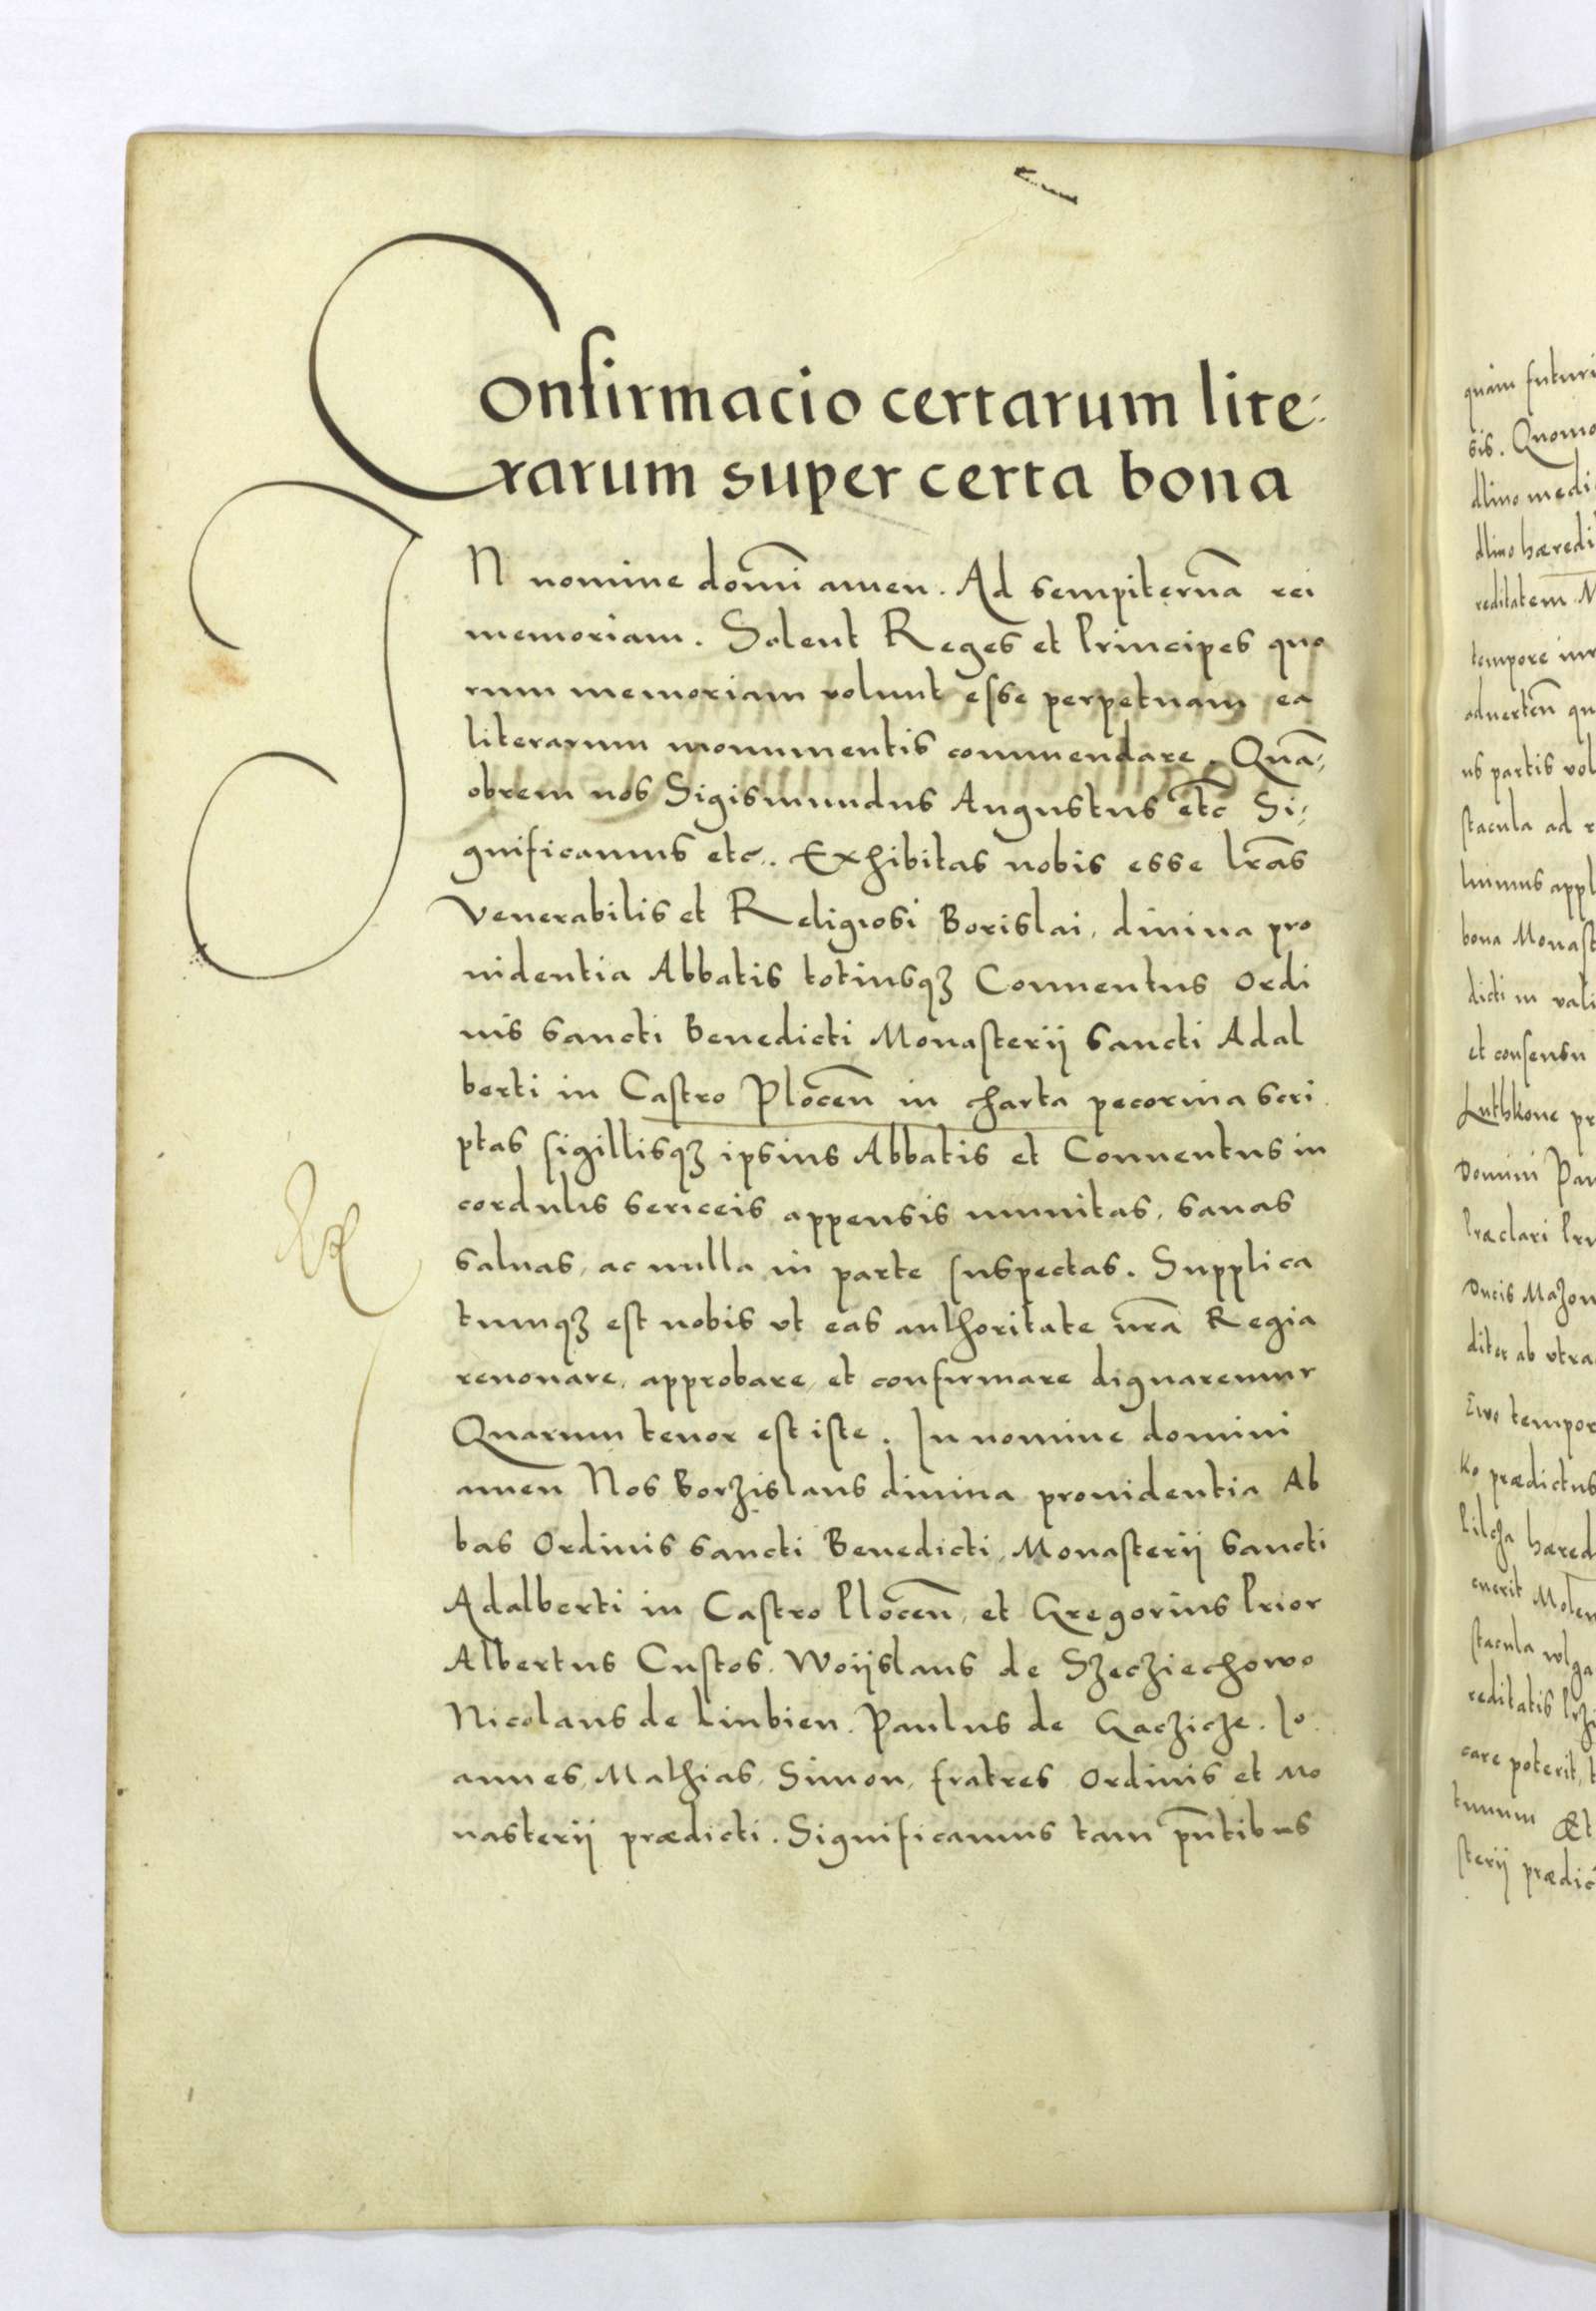 Confirmacio certarum lite⸗
rarum super certa bona
IN nomine domĩ amen. Ad sempiternã rei
memoriam. Solent Reges et Principes quo
rum memoriam volunt esse perpetuam ea
literarum monumentis commendare. Quã⸗
obrem nos Sigismundus Augustus etc̃ Si⸗
gnificamus etc. Exhibitas nobis esse lrãs
Venerabilis et Religiosi Borislai, diuina pro
uidentia Abbatis totiusqꝫ Conuentus Ordi
nis Sancti Benedicti Monasterij Sancti Adal
berti in Castro Plocen̄ in charta pecorina scri
ptas sigillisqꝫ ipsius Abbatis et Conuentus in
cordulis sericeis appensis munitas, sanas
saluas, ac nulla in parte suspectas. Supplica
tumqꝫ est nobis vt eas authoritate nrã Regia
renouare, approbare, et confirmare dignaremur
Quarum tenor est iste. In nomine domini
amen Nos Borzislaus diuina prouidentia Ab
bas Ordinis Sancti Benedicti, Monasterij Sancti
Adalberti in Castro Plocen̄, et Gregorius Prior
Albertus Custos. Woijslaus de Szecziechowo
Nicolaus de Linbien. Paulus de Gaczicze. Io
annes, Mathias, Simon, fratres Ordinis et Mo
nasterij prædicti. Significamus tam pñtibus
quam futuri
sis. Quomo
dlino medi
dlino hæredi
reditatem M
tempore
aduerten̄ qu
us partis vol
stacula ad r
luimus appl
bona Monast
dicti in vali
et consensu
Luthkone pr
Domini Pau
Præclari Pri
Ducis Mazou
diter ab vtra
Zwo tempor
ko prædictus
Pilcza hæred
enerit Molen
stacula wlga
reditatis
care poterit, t
tuum Et
sterij prædic